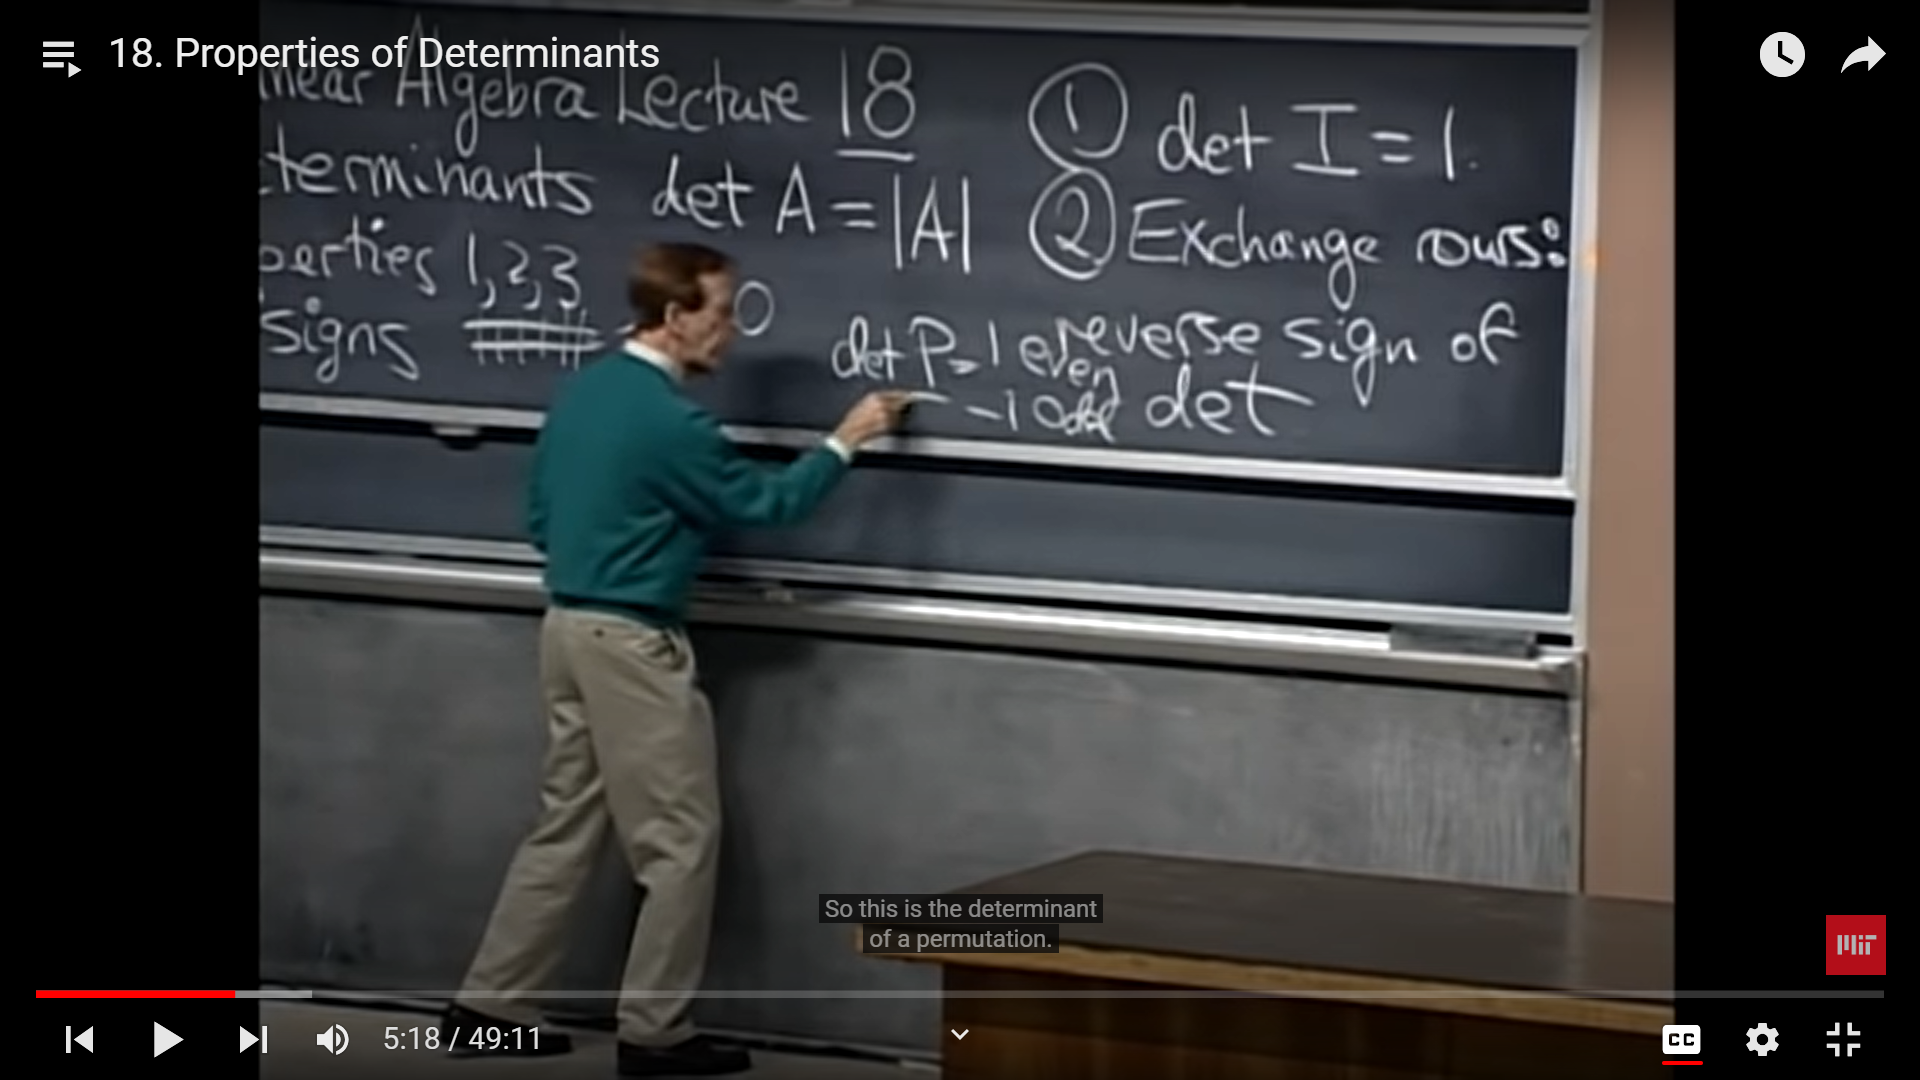 18. Properties of Determinants
near Algebra Lecture 18
terminants det A = |A|
perties 1, 2, 3
signs
0
① det I = 1.
② Exchange rows:
reverse sign of
det
det P = 1 even
-1 odd
So this is the determinant
of a permutation.
MIT
5:18 / 49:11
CC